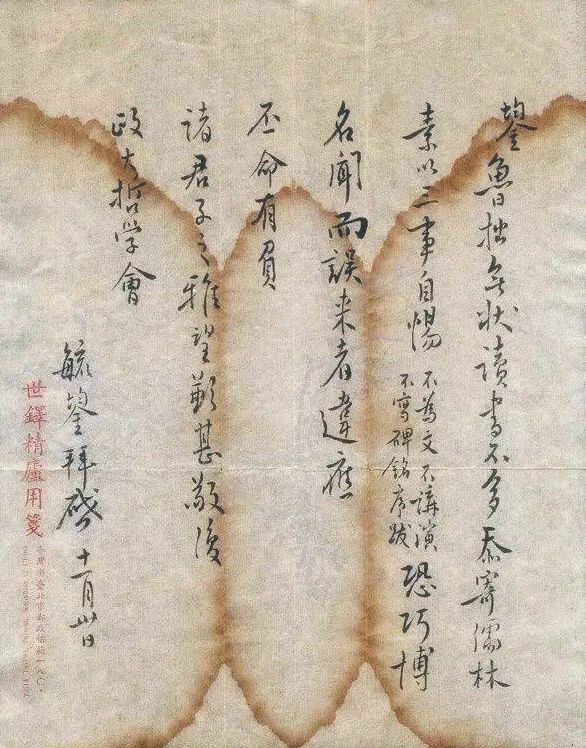 鋆魯拙無狀讀書不多忝寄儒林
素以三事自惕
不為文不講演
不寫碑銘序跋
恐巧博
名聞而誤来者違應
丕命有負
諸君子之雅望歉甚敬復
政大哲学會
毓鋆拜啓 十一月卅日
世鐸精廬用箋